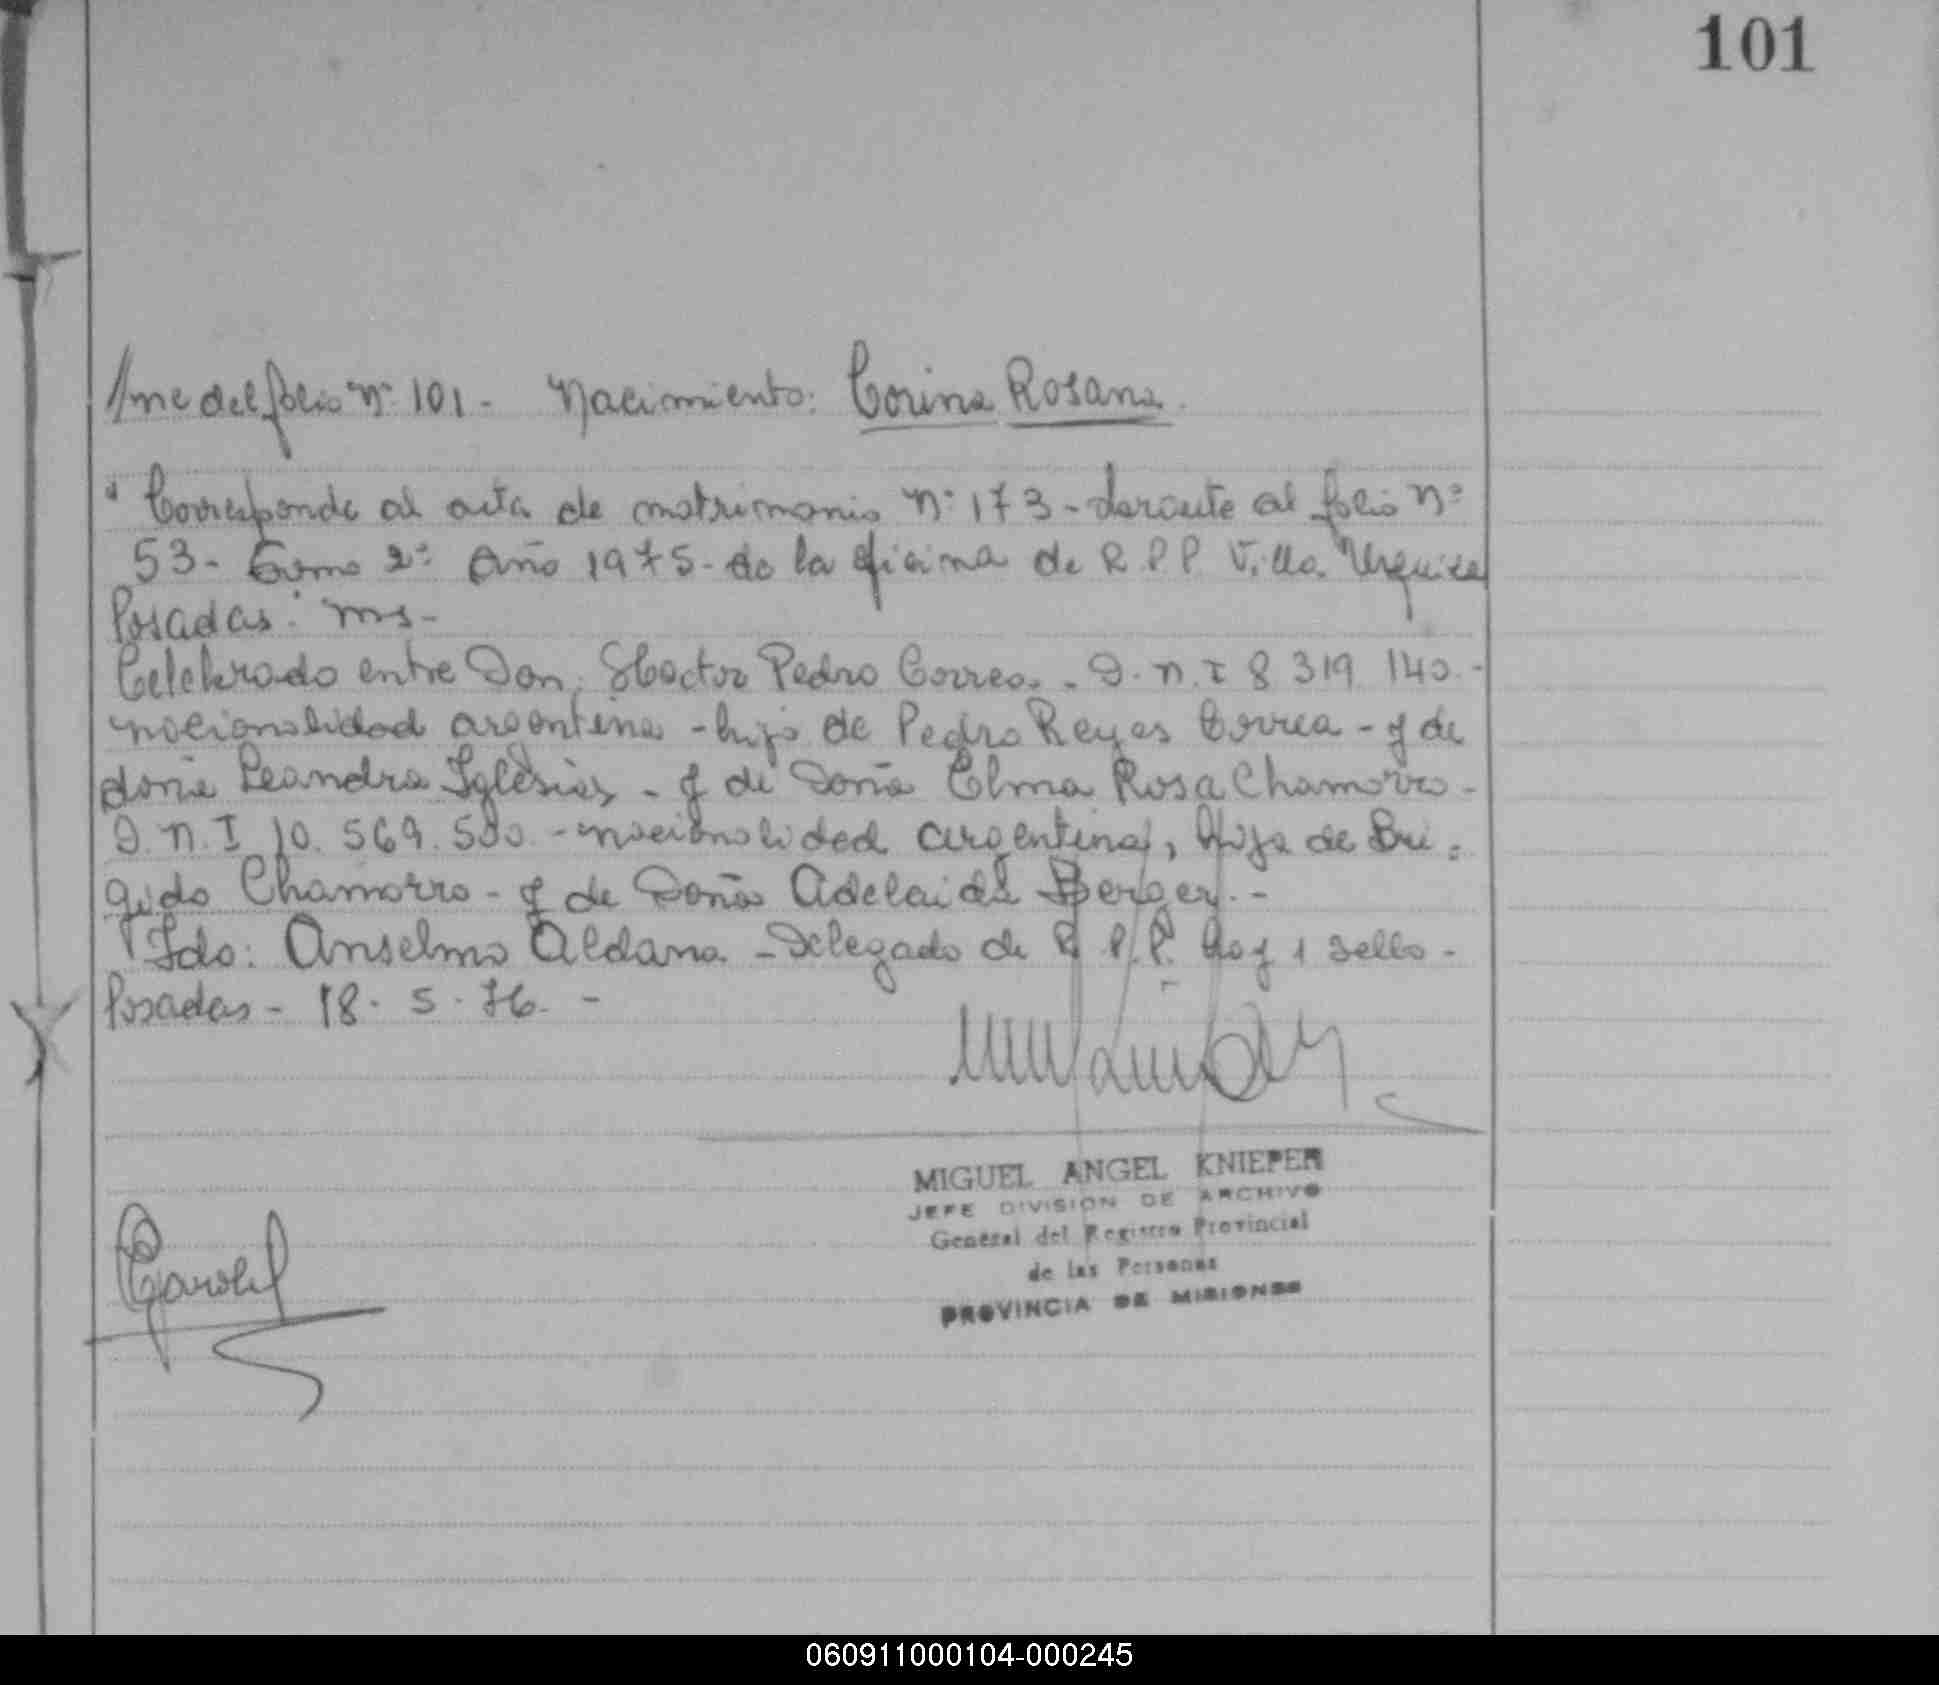 101
//ne del folio nº 101 - Nacimiento: Corina Rosana.
" Corresponde al acta de matrimonio Nº 173 - al folio Nº
53 - Tomo 2º Año 1975 - de la oficina de R.P.P. Villa Urquiza
Posadas: Ms -
Celebrado entre Don: Hector Pedro Correa. - D.N.I 8 319 140. -
nacionalidad argentina - hijo de Pedro Reyes Correa - y de
doña Leandra Iglesias - y de Doña Elma Rosa Chamorro -
D.N.I 10.569.500 - nacionalidad argentina, hija de Bri=
gido Chamorro - y de Doña Adelaida Berger. -
Fdo: Anselmo Aldana - Delegado de R.P.P. Hay 1 sello -
Posadas - 18 . 5 . 76. -
MIGUEL ANGEL KNIEPER
JEFE DIVISION DE ARCHIVO
General del Registro Provincial
de las Personas
PROVINCIA DE MISIONES
060911000104-000245